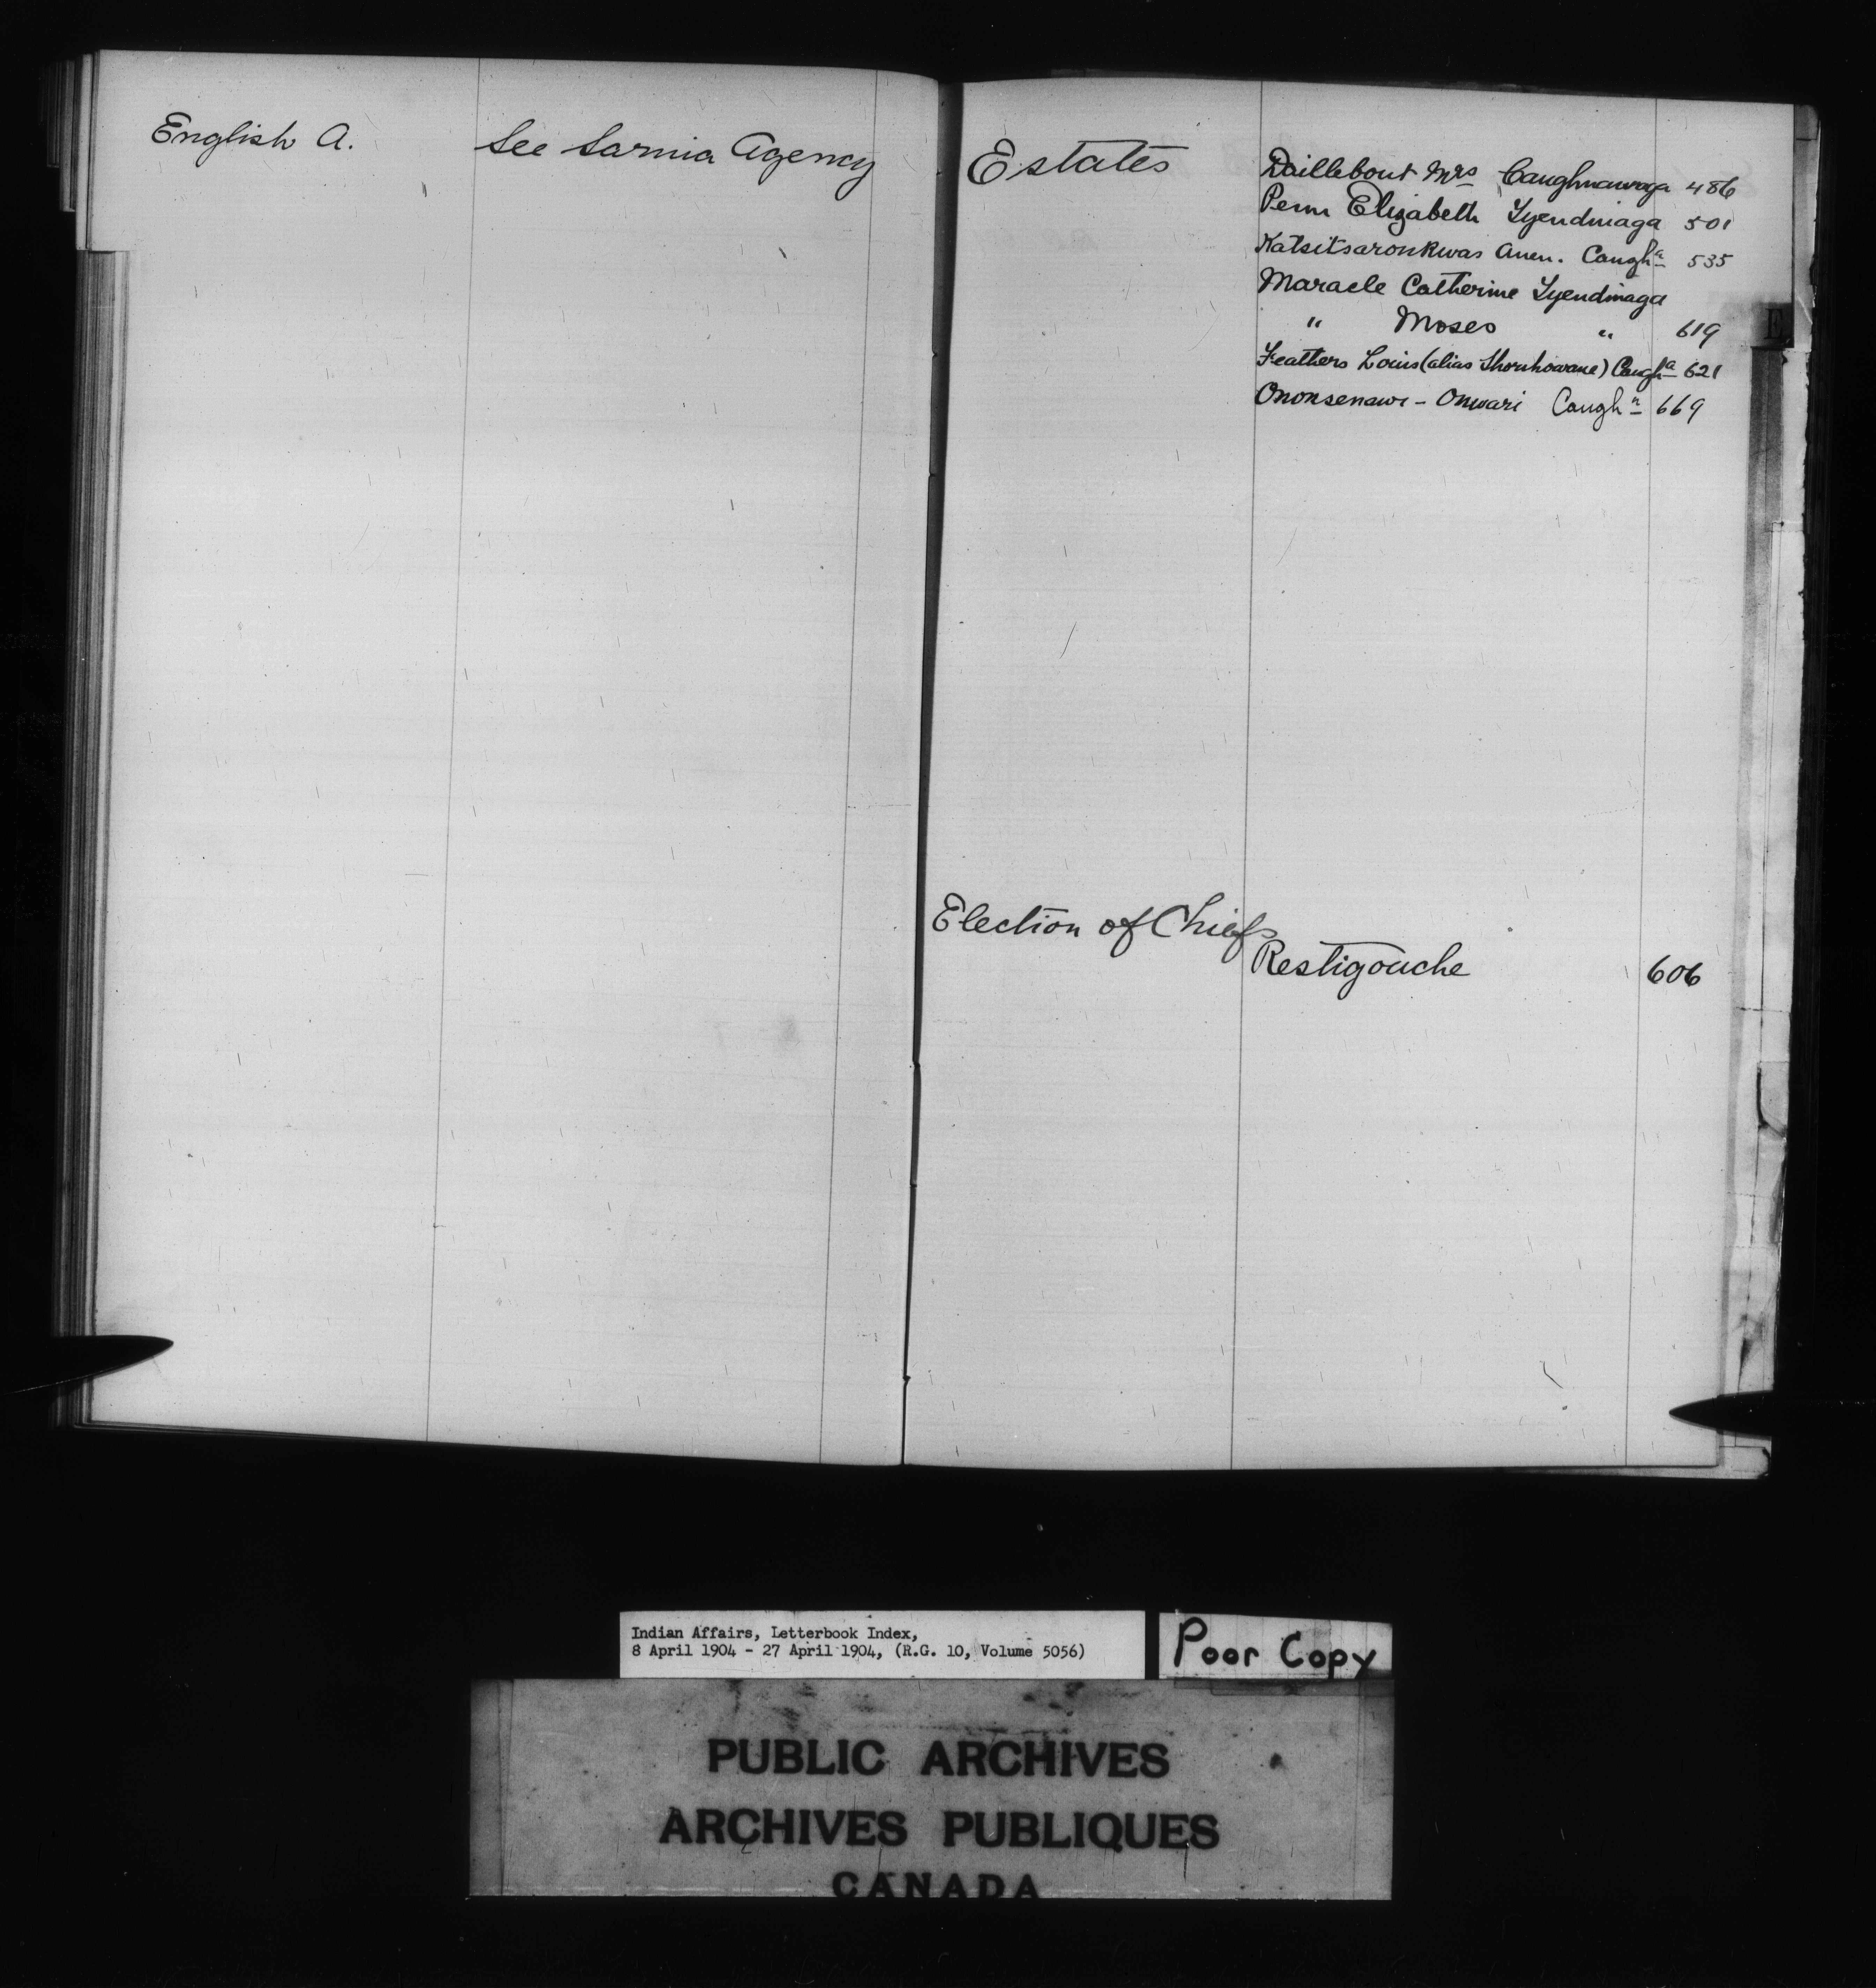 English A. See Sarnia Agency
Estates
Daillebout Mrs Caughnawaga 486
Penn Elizabeth Tyendinaga 501
Katsitsaronkwas Anen. Caugha 535
Maracle Catherine Tyendinaga
" Moses " 619
Feathers Louis (alias Shonhowane) Caugha 621
Ononsenawi - Onwari Caughn 669
E
Election of Chiefs
Restigouche 606
Indian Affairs, Letterbook Index,
8 April 1904 - 27 April 1904, (R.G. 10, Volume 5056)
Poor Copy
PUBLIC ARCHIVES
ARCHIVES PUBLIQUES
CANADA